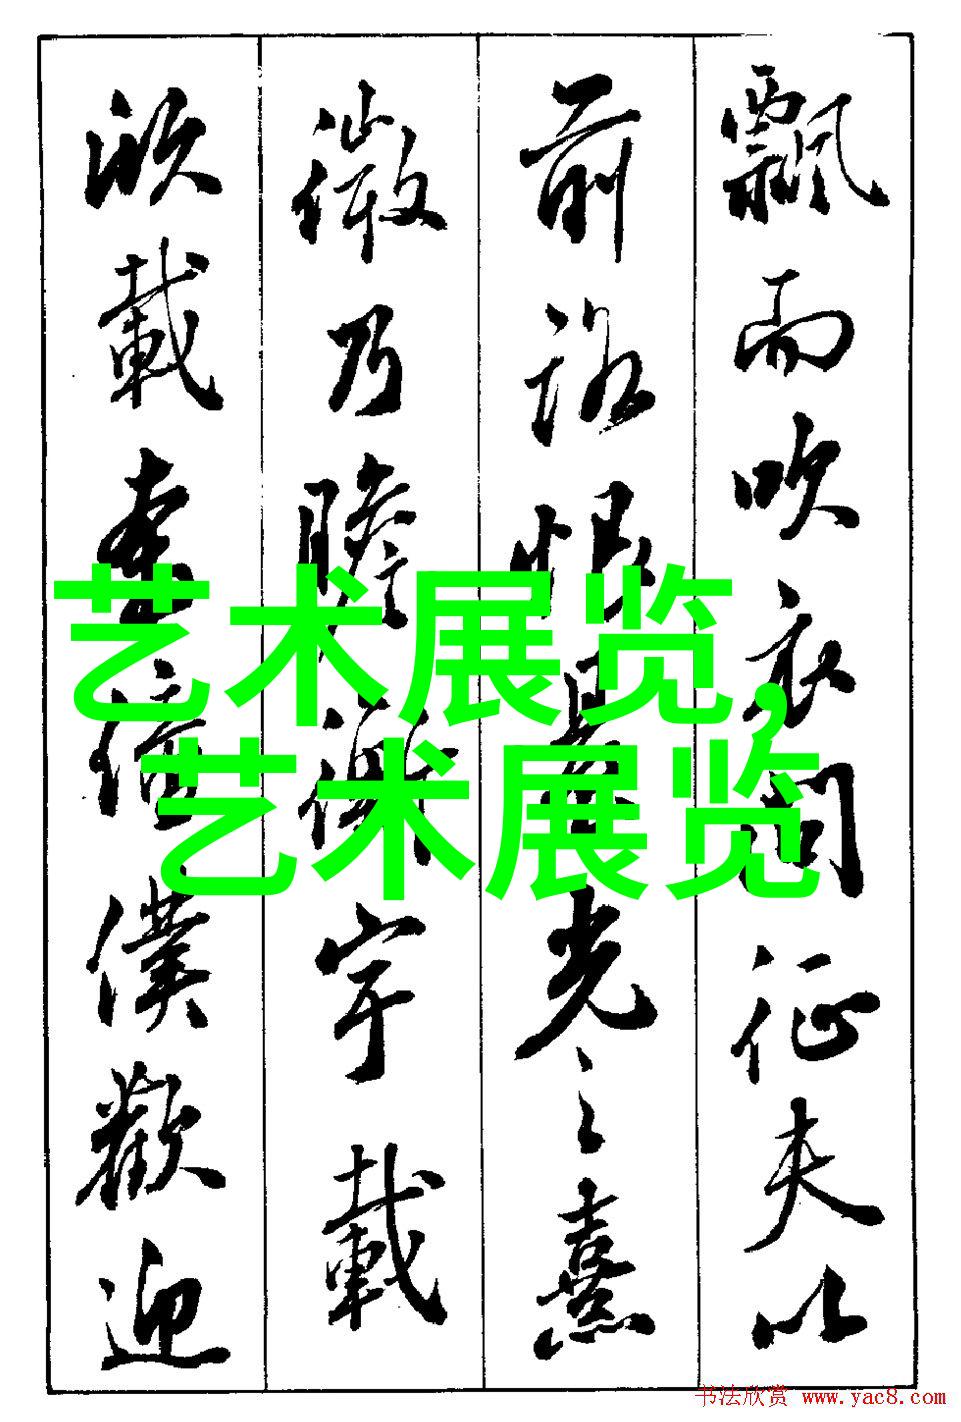 飄而吹衣問征夫以
前路恨晨光之熹
微乃瞻衡宇載
欣載奔僮僕歡迎
艺术展览,
艺术展览
书法欣赏 www.yac8.com